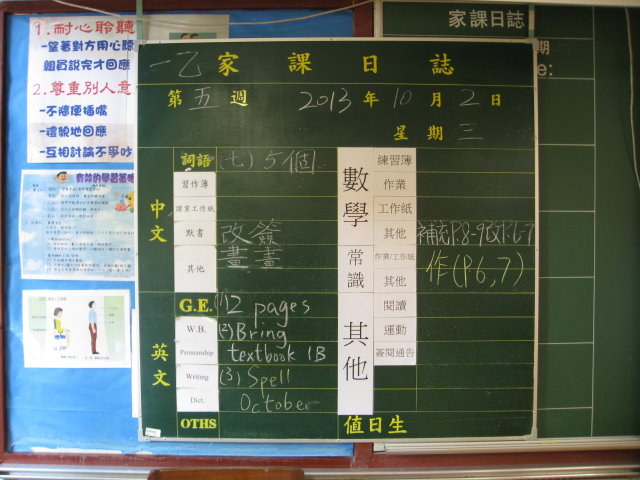 1.耐心聆聽
-望著對方用心聽
組員說完才回應
2.尊重別人意
-不隨便插嘴
-禮貌地回應
-互相討論不爭吵
家課日誌
一乙家課日誌
第五週 2013年10月2日
星期三
中文
詞語 (七)5個
習作簿
課堂工作紙
默書 改簽
其他 畫畫
英文
G.E. (1)2 pages
W.B. (2)Bring
Penmanship textbook 1B
Writing (3)Spell
Dict. October
OTHS
數學
練習簿
作業
工作紙
其他 補充P.8-9改P.6-7
常識
作業/工作紙 作(P.6,7)
其他
其他
閱讀
運動
簽閱通告
值日生